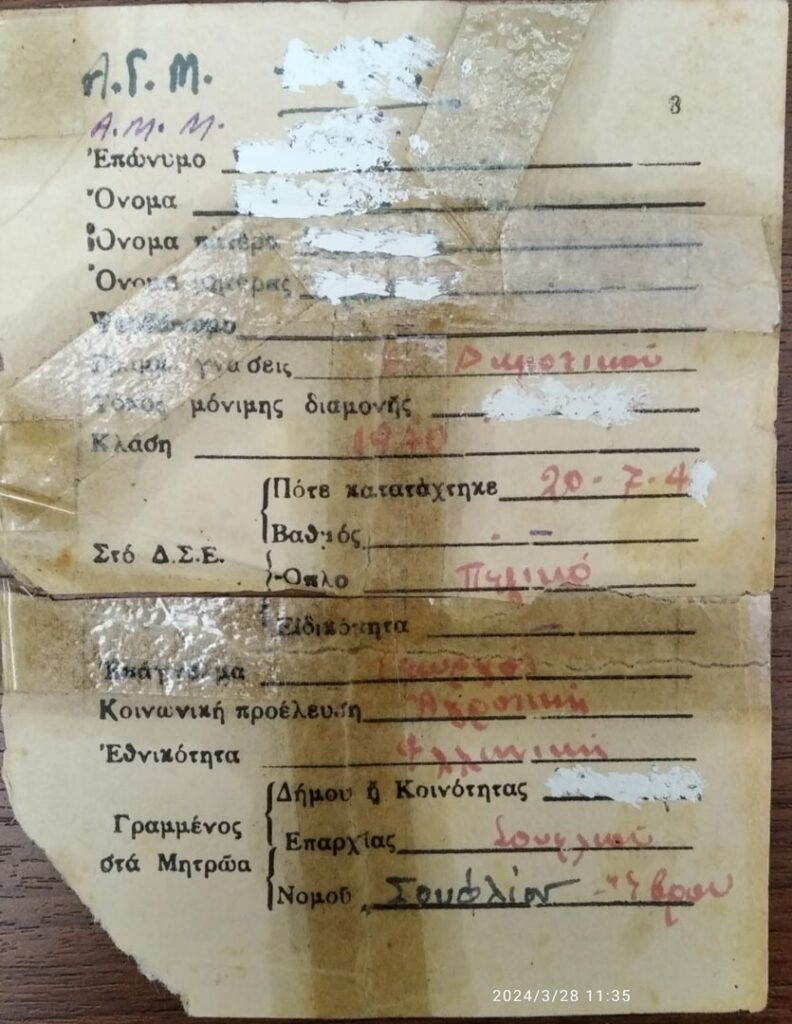 Α.Γ.Μ.
3
Α.Μ.Μ.
Ἐπώνυμο
Ὄνομα
Ὄνομα πατέρα
Ὄνομα μητέρας
Ψευδώνυμο
Γραμμ. γνώσεις Δημοτικού
Τόπος μόνιμης διαμονῆς
Κλάση 1940
Στό Δ.Σ.Ε.
Πότε κατατάχτηκε 20-7-4
Βαθμός -
Ὅπλο Πεζικό
Εἰδικότητα -
Ἐπάγγελμα Γεωργός
Κοινωνική προέλευση Αγροτική
Ἐθνικότητα Ελληνική
Γραμμένος στά Μητρῶα
Δήμου ἤ Κοινότητας
Ἐπαρχίας Σουφλίου
Νομοῦ Σουφλίου Έβρου
2024/3/28 11:35